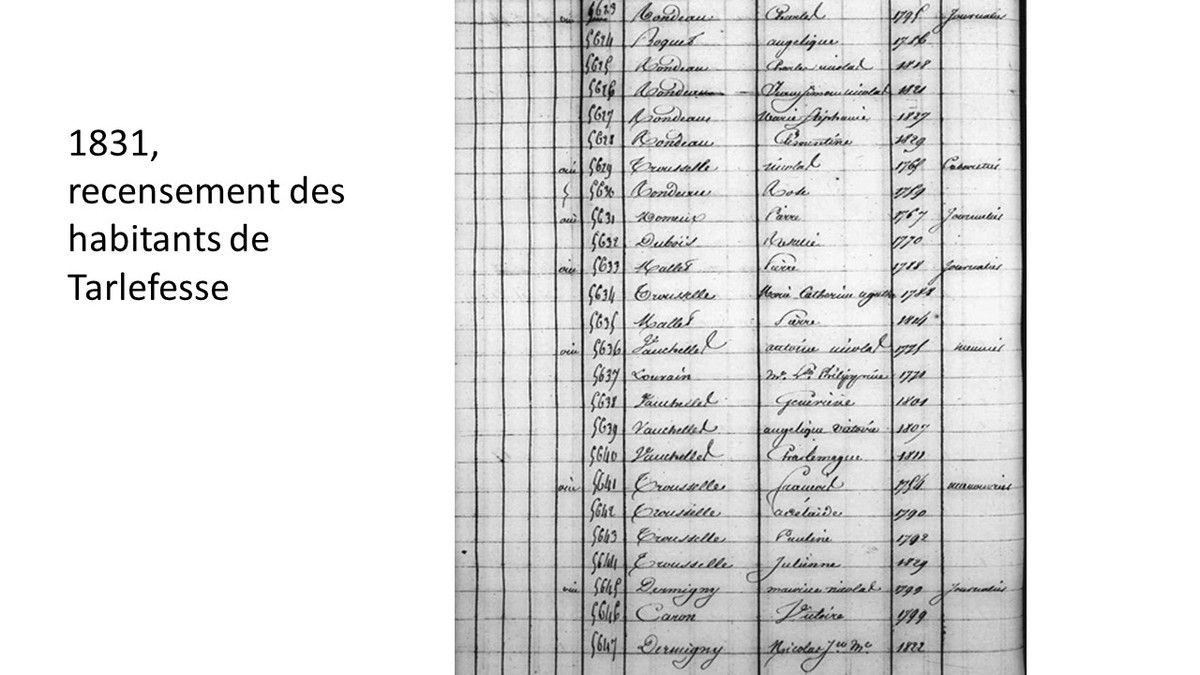 1831,
recensement des
habitants de
Tarlefesse
oui 5623 Rondeau Charles 1795 Journalier
5624 Roquet angelique 1786
5625 Rondeau Charles nicolas 1818
5626 Rondeau nicolas 1821
5627 Rondeau Marie Stéphanie 1827
5628 Rondeau Clémentine 1829
oui 5629 Trousselle nicolas 1765
5630 Rondeau Rose 1759
oui 5631 Pierre 1767 Journalier
5632 Dubois 1770
oui 5633 Mallet Pierre 1788 Journalier
5634 Trousselle Marie Catherine 1788
5635 Mallet Pierre 1814
oui 5636 Vauchelles antoine nicolas 1775 meunier
5637 Louvain 1770
5638 Vauchelles Geneviève 1801
5639 Vauchelles angelique victoire 1807
5640 Vauchelles Charlemagne 1811
oui 5641 Trousselle francois 1754 manouvrier
5642 Trousselle adélaide 1790
5643 Trousselle Pauline 1792
5644 Trousselle Julienne 1829
oui 5645 Dermigny maurice nicolas 1799 Journalier
5646 Caron Victoire 1799
5647 Dermigny Nicolas 1822